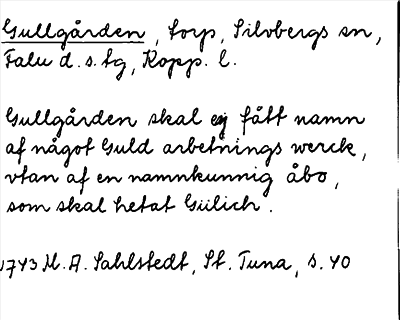 Gullgården, torp, Silvbergs sn,
Falu d.s. tg, Kopp. l.
Gullgården skal ej fått namn
af något Guld arbetnings werck,
vtan af en namnkunnig åbo,
som skal hetat Gülich.
1743 M. A. Sahlstedt, St. Tuna, s. 40